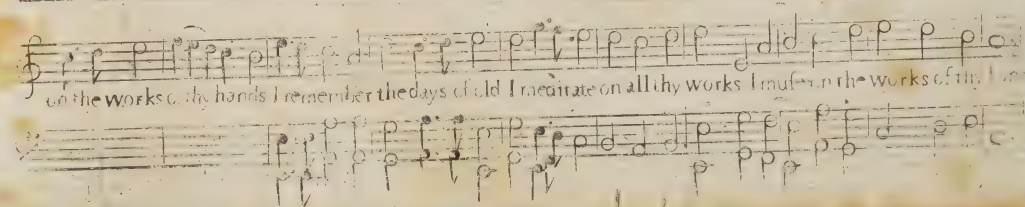 on the works of thy hands I remember the days of old I meditate on all thy works I muse on the works of thy